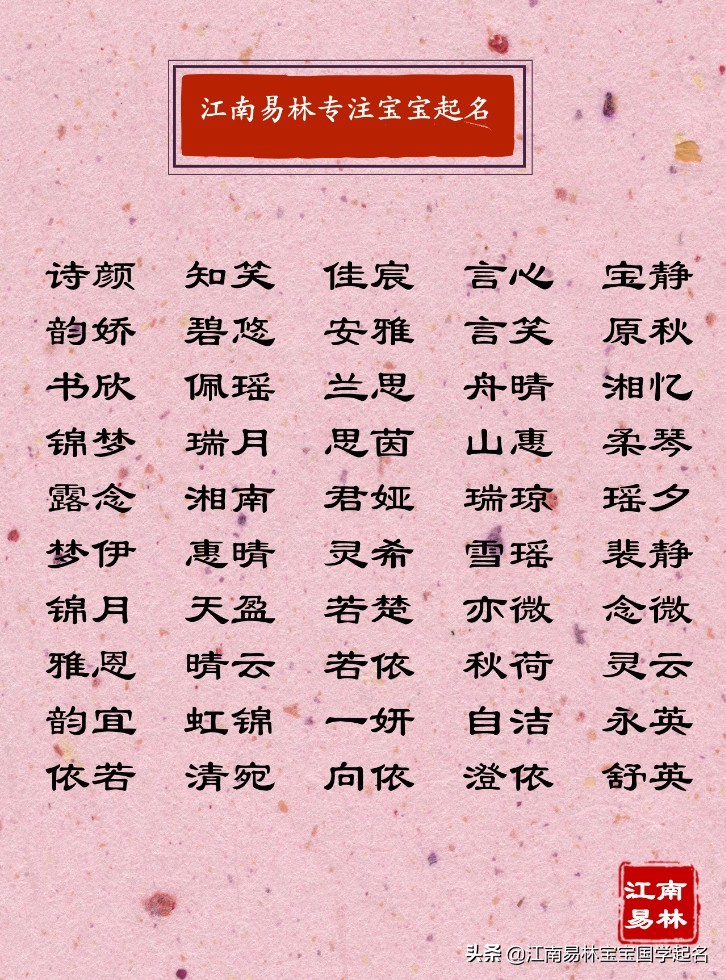 江南易林专注宝宝起名
诗颜 知笑 佳宸 言心 宝静
韵娇 碧悠 安雅 言笑 原秋
书欣 佩瑶 兰思 舟晴 湘忆
锦梦 瑞月 思茵 山惠 柔琴
露念 湘南 君娅 瑞琼 瑶夕
梦伊 惠晴 灵希 雪瑶 裴静
锦月 天盈 若楚 亦微 念微
雅恩 晴云 若依 秋荷 灵云
韵宜 虹锦 一妍 自洁 永英
依若 清宛 向依 澄依 舒英
江南
易林
头条 @江南易林宝宝国学起名